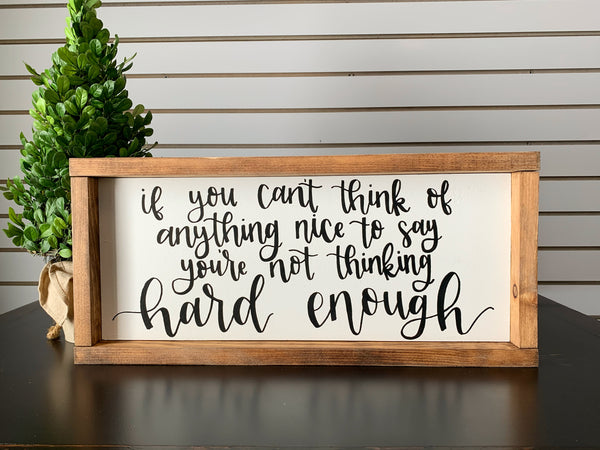 if you can't think of
anything nice to say
you're not thinking
hard enough